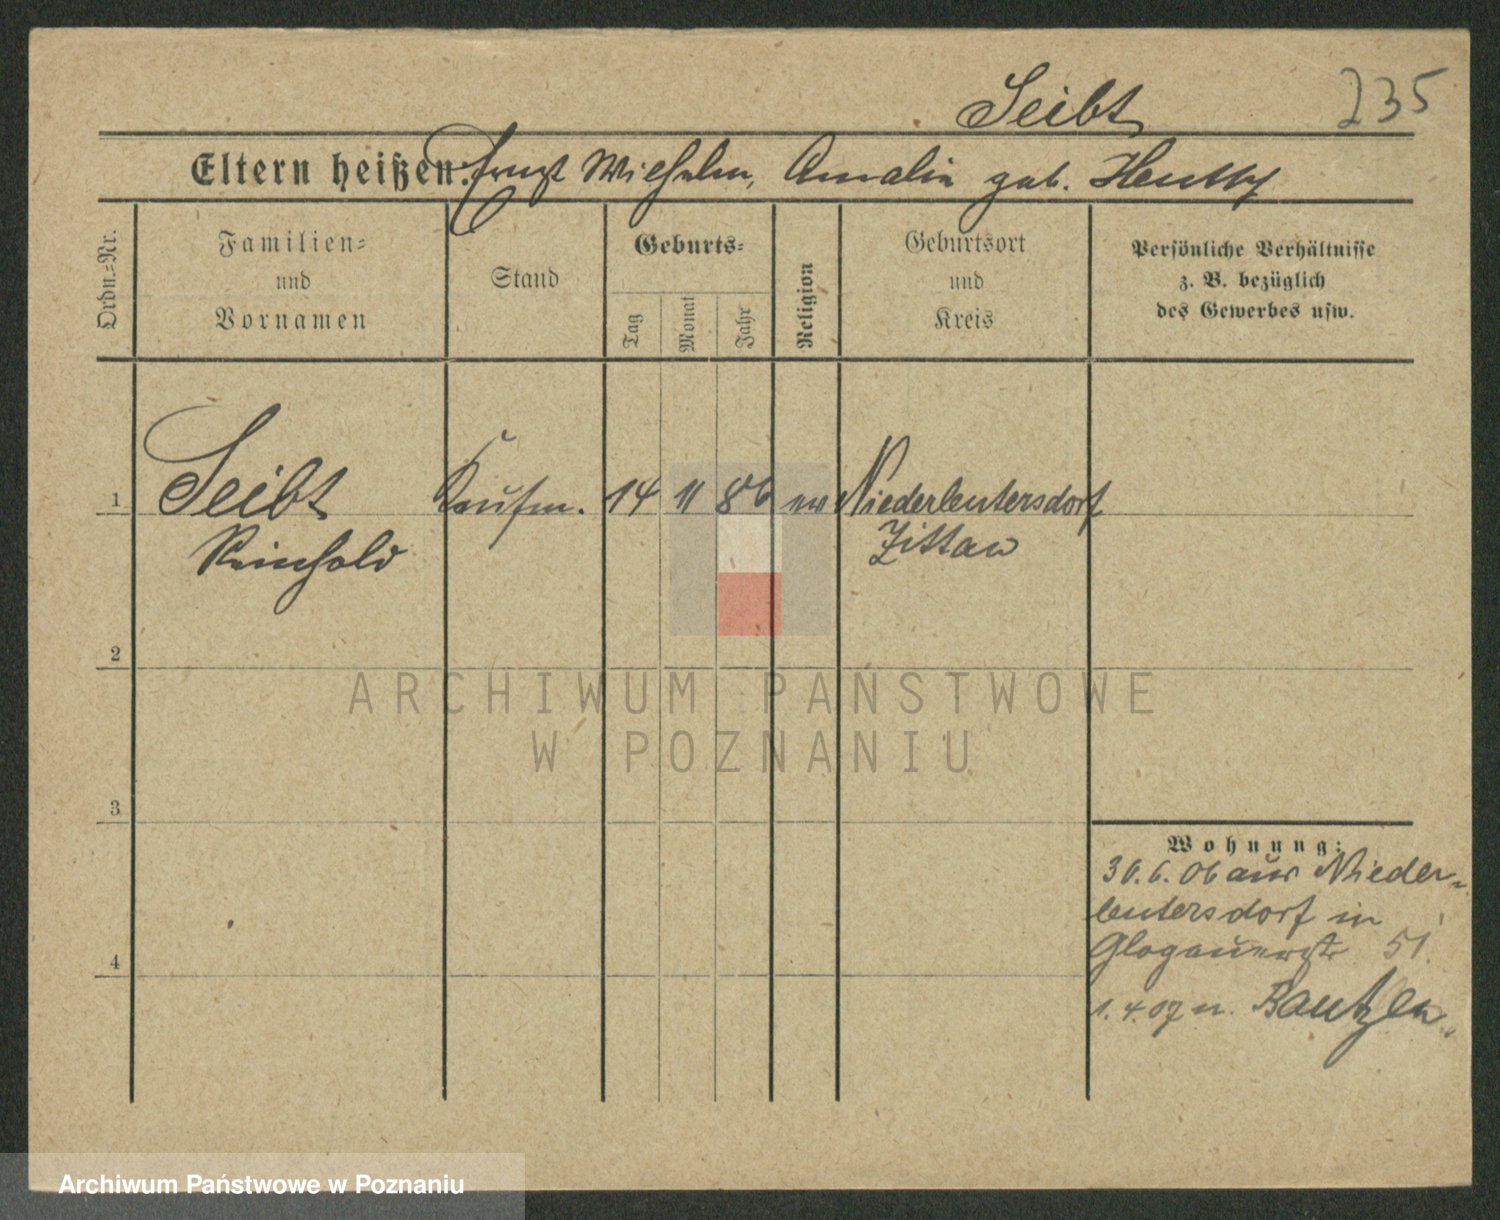 Seibt
235
Eltern heißen: Ernst Wilhelm, Amalie geb.
Ordn.-Nr.
Familien-
und
Vornamen
Stand
Geburts-
Tag
Monat
Jahr
Religion
Geburtsort
und
Kreis
Persönliche Verhältnisse
z. B. bezüglich
des Gewerbes usw.
1
Seibt
Reinhold
Kaufm. 14 11 86 ev Niederleutersdorf
Zittau
2
ARCHIWUM PAŃSTWOWE
W POZNANIU
3
Wohnung:
30.6.06 aus Nieder-
leutersdorf in
Glogauerstr 51.
4
1.4.07 n. Bautzen
Archiwum Państwowe w Poznaniu